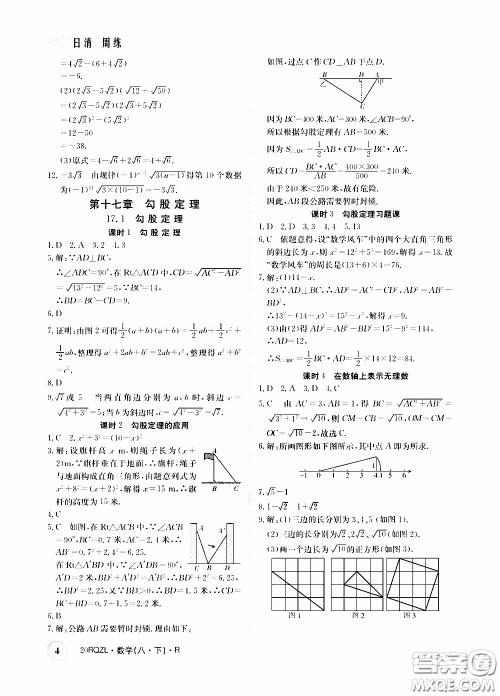 日清 周练
=4√2-(6+4√2)
=-6.
(2)(2√3-5√2)(√12+√50)
=(2√3-5√2)(2√3+5√2)
=(2√3)²-(5√2)²
=12-50
=-38.
(3)原式=4-√6+2√6=4+√6.
第十七章 勾股定理
17.1 勾股定理
课时1 勾股定理
1.D 2.A 3.2 4.3
5.解:∵AD⊥BC,
∴∠ADC=90°,在Rt△ACD中,CD=√(AC²-AD²)
=√(13²-12²)=5,∵BC=14,
∴BD=BC-CD=9.
6.D
7.证明:由图2可得½(a+b)(a+b)=½ab+½c²+
½ab,整理得a²+2ab+b²=2ab+c²,整理得a²+b²=c².
8.D
9.√7或5 当两直角边分别为a,b时,斜边=
√(4²+3²)=5;当b为斜边时,
课时2 勾股定理的应用
1.C 2.x²+3²=(10-x)²
3.解:设旗杆高x m,则绳子长为(x+
2)m,∵旗杆垂直于地面,∴旗杆,绳子
与地面构成直角三角形,由题意列式为
x²+8²=(x+2)²,解得x=15,∴旗
杆的高度为15米.
4.C
5.C 如图,在Rt△ACB中,∵∠ACB
=90°,BC=0.7米,AC=2.4米,∴
AB²=0.7²+2.4²=6.25.
在Rt△A′BD中,∵∠A′DB=90°,
A′D=2米,BD²+A′D²=A′B²,∴BD²+2²=6.25,
∴BD²=2.25,∵BD>0,∴BD=1.5米,
∴CD=BC+BD=0.7+1.5=2.2米.
6.B
7.解:公路AB需要暂时封锁.理由如下:
4 20RQZL·数学(八·下)·R
如图,过点C作CD⊥AB于点D.
因为BC=400米,AC=300米,∠ACB=90°,
所以根据勾股定理有AB=500米.
因为S△ABC=½AB·CD=½BC·AC,
所以CD=BC·AC/AB=400×300/500=240(米).
由于240米<250米,故有危险,
因此,AB段公路需要暂时封锁.
课时3 勾股定理习题课
1.D 2.D 3.3 4.4 5.13
6.C 依题意得,设“数学风车”中的四个大直角三角形
的斜边长为x,则x²=12²+5²=169,解得x=13.故
“数学风车”的周长是(13+6)×4=76.
7.解:(1)14-x
(2)∵AD⊥BC,∴AD²=AC²-CD²,AD²=AB²-
BD².
∴13²-(14-x)²=15²-x²,解得x=9.
(3)由(2)得AD²=AB²-BD²=15²-9²=144,
∴AD=12.
∴S△ABC=½BC·AD=½×14×12=84.
课时4 在数轴上表示无理数
1.D 2.B 3.D 4.C
5.C 由AC=3,BC=1,得AB=√(AC²+AB²)=
√(3²+1²)=√10,则CM=CB=√10,OM=CM-
OC=√10-2,故选C.
6.解:所画图形如下图所示,其中点A即为所求.
7.√5-1
8.1-√2 1+√2
9.解:(1)三边的长分别为3,4,5(如图1).
(3)画一个边长为√10的正方形(如图3).
图1 图2 图3